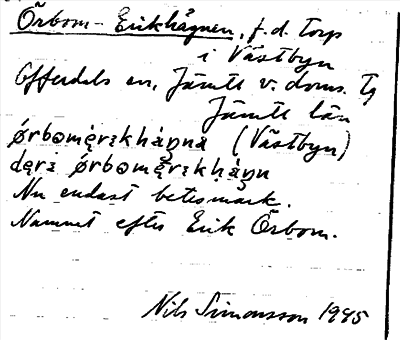 Örbom-Erikhågnen, f.d. torp
i Västbyn
Offerdals sn, Jämtl v. doms. tg
Jämtl län
(Västbyn)
Nu endast betesmark.
Namnet efter Erik Örbom.
Nils Simonsson 1945